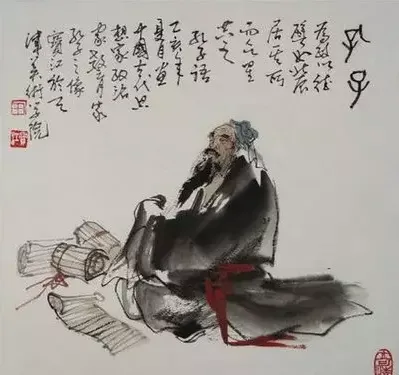 孔子
為政以德
譬如北辰
居其所
而众星
共之
孔子語
乙亥年
夏月畫
中國古代思
想家政治
家教育家
孔子之像
寳江於天
津美術学院